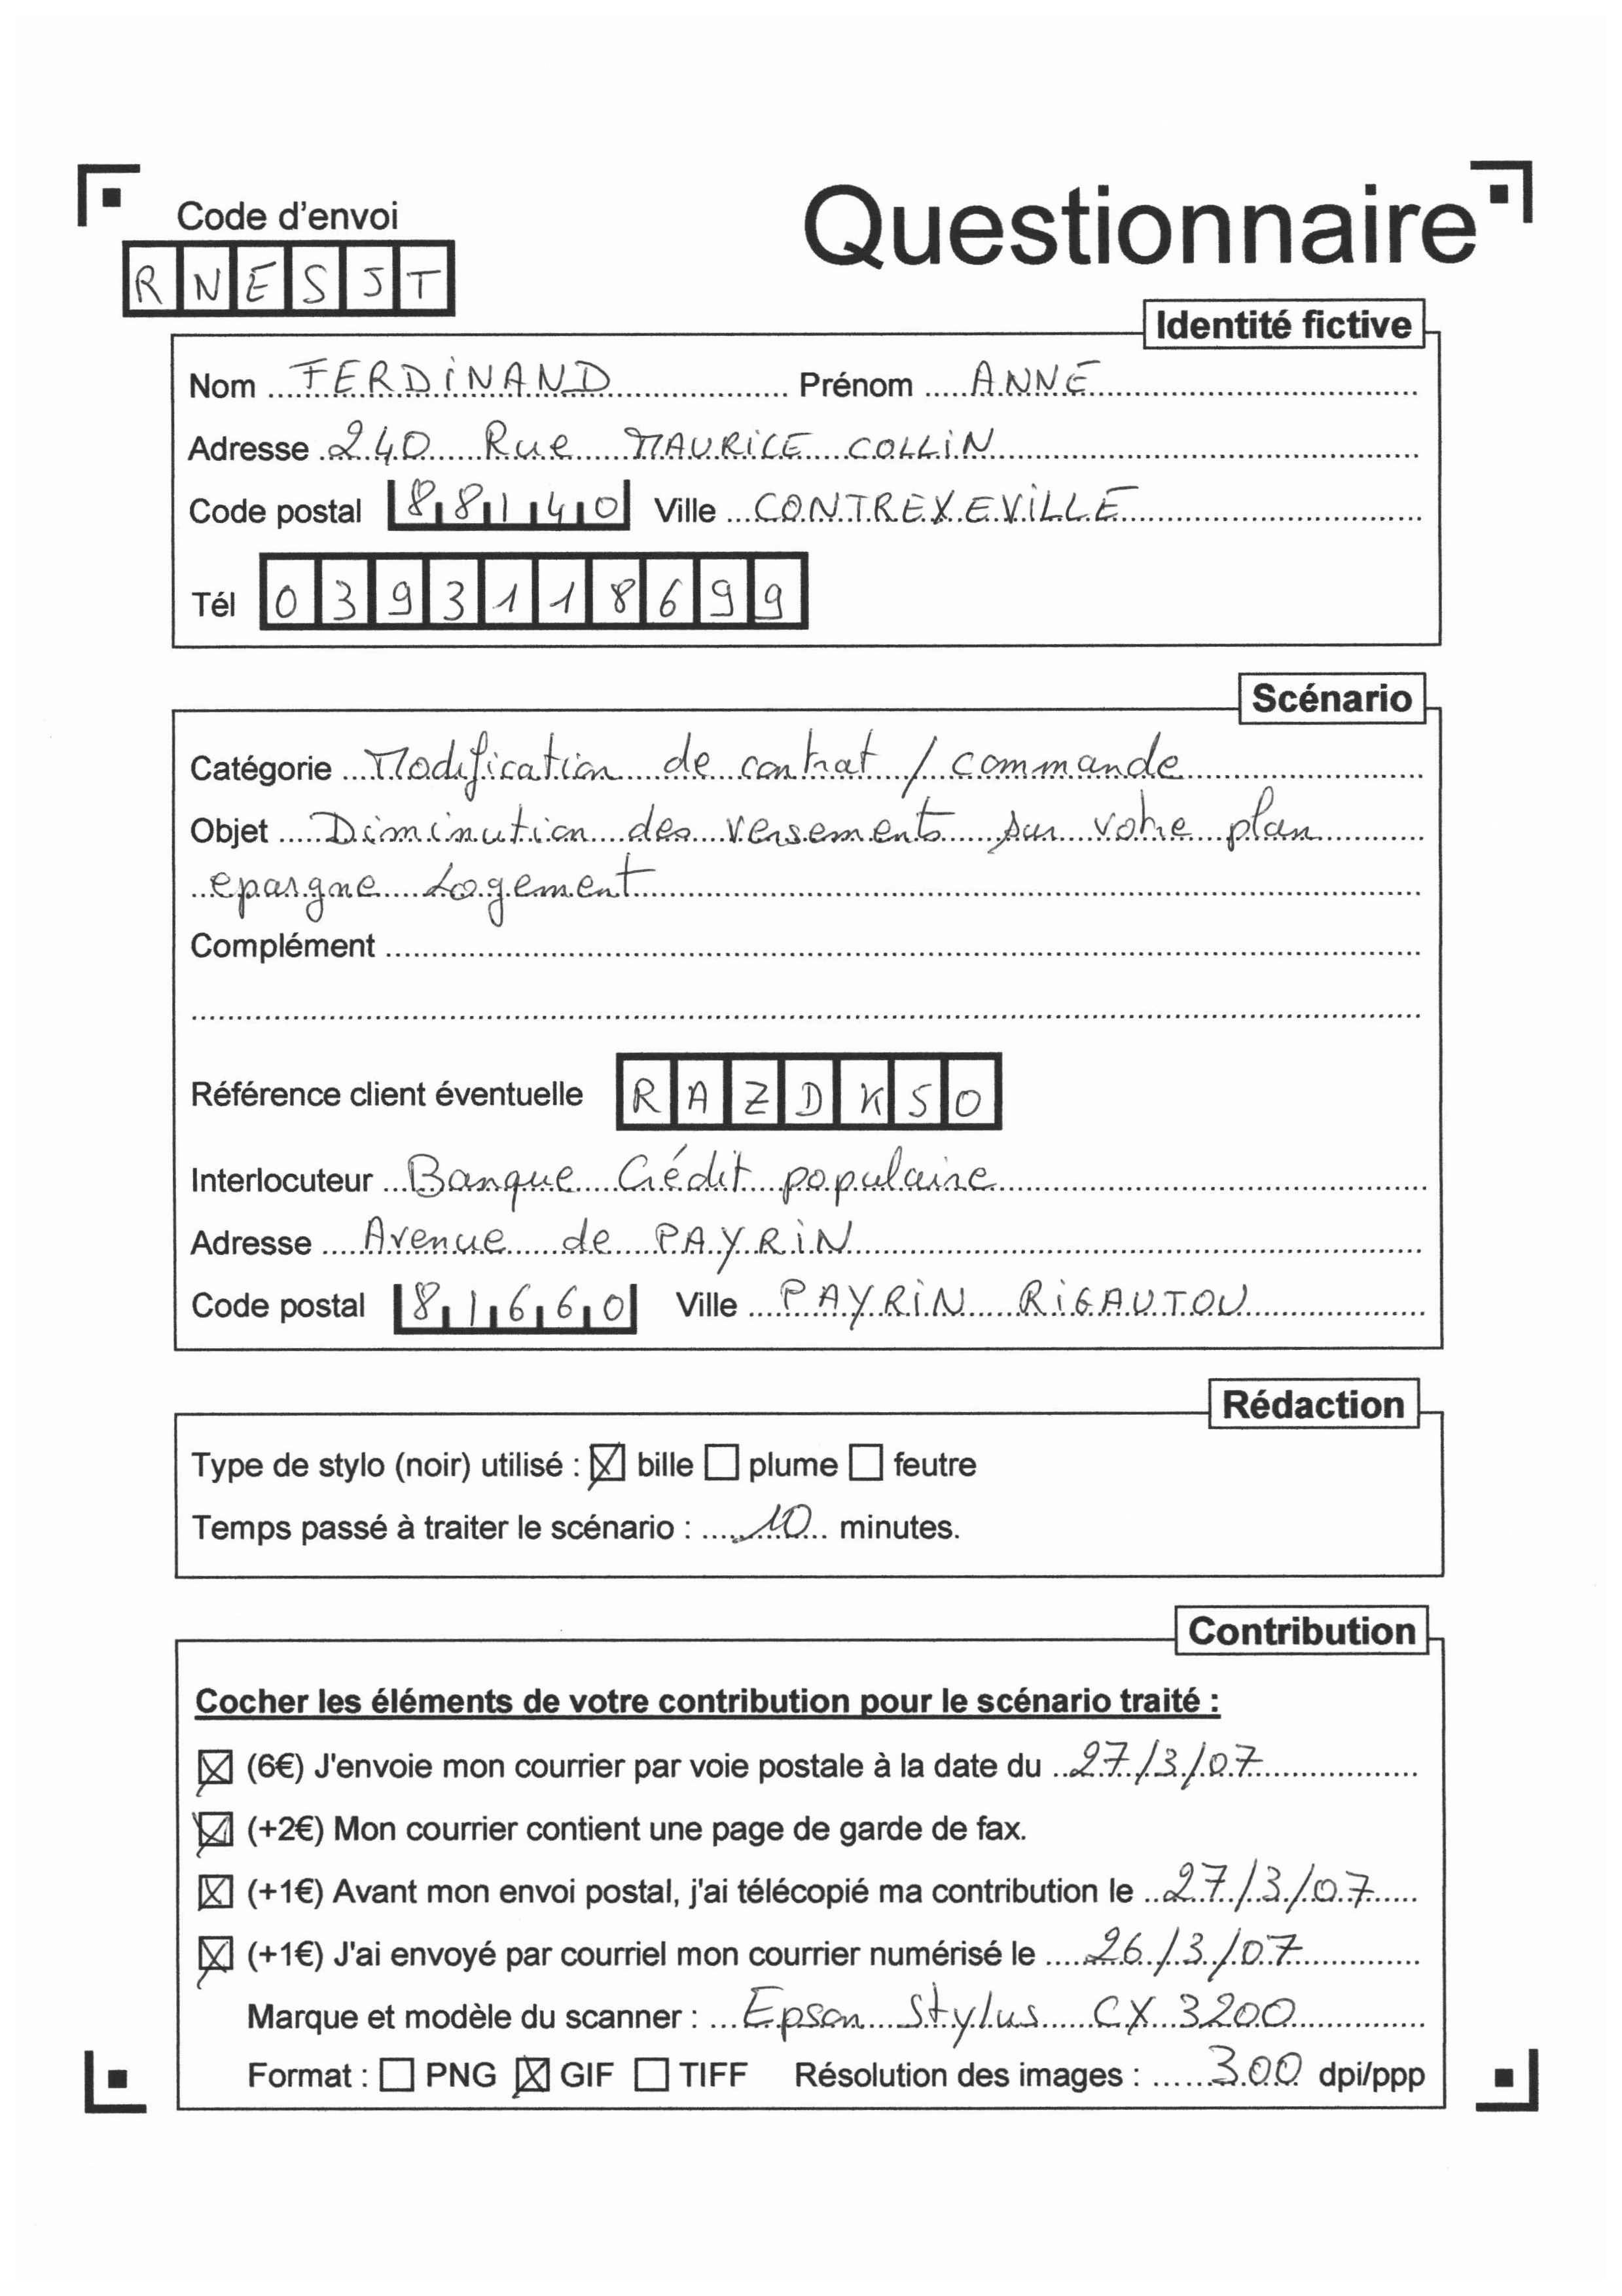 Code d'envoi
Questionnaire
RNESJT
Identité fictive
Nom FERDINAND Prénom ANNE
Adresse 240 Rue MAURICE COLLIN
Code postal 88140 Ville CONTREXEVILLE
Tél 0393118699
Scénario
Catégorie Modification de contrat / commande
Objet Diminution des versements sur votre plan
epargne Logement
Complément
Référence client éventuelle RAZDKSO
Interlocuteur Banque Crédit populaire
Adresse Avenue de PAYRIN
Code postal 81660 Ville PAYRIN RIGAUTOU
Rédaction
Type de stylo (noir) utilisé : ☒ bille ☐ plume ☐ feutre
Temps passé à traiter le scénario : 10 minutes.
Contribution
Cocher les éléments de votre contribution pour le scénario traité :
☒ (6€) J'envoie mon courrier par voie postale à la date du 27/3/07
☒ (+2€) Mon courrier contient une page de garde de fax.
☒ (+1€) Avant mon envoi postal, j'ai télécopié ma contribution le 27/3/07
☒ (+1€) J'ai envoyé par courriel mon courrier numérisé le 26/3/07
Marque et modèle du scanner : Epson Stylus CX 3200
Format : ☐ PNG ☒ GIF ☐ TIFF Résolution des images : 300 dpi/ppp